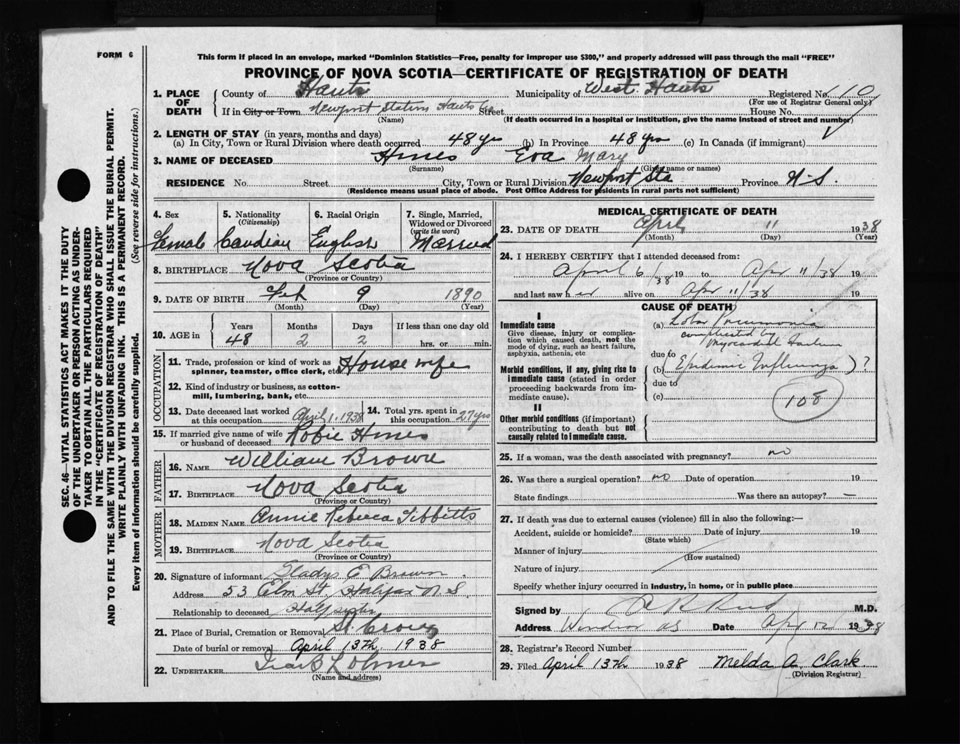 FORM 6
This form if placed in an envelope, marked "Dominion Statistics—Free, penalty for improper use $300," and properly addressed will pass through the mail "FREE"
PROVINCE OF NOVA SCOTIA—CERTIFICATE OF REGISTRATION OF DEATH
SEC. 46—VITAL STATISTICS ACT MAKES IT THE DUTY
OF THE UNDERTAKER OR PERSON ACTING AS UNDER-
TAKER TO OBTAIN ALL THE PARTICULARS REQUIRED
IN THE "CERTIFICATE OF REGISTRATION OF DEATH"
AND TO FILE THE SAME WITH THE DIVISION REGISTRAR WHO SHALL ISSUE THE BURIAL PERMIT.
WRITE PLAINLY WITH UNFADING INK. THIS IS A PERMANENT RECORD.
Every item of information should be carefully supplied. (See reverse side for instructions.)
1. PLACE OF DEATH County of Hants Municipality of West Hants Registered No. 110
(For use of Registrar General only)
If in City or Town Newport Station Hants Co Street House No.
(Name) (If death occurred in a hospital or institution, give the name instead of street and number)
2. LENGTH OF STAY (in years, months and days)
(a) In City, Town or Rural Division where death occurred 48 yrs (b) In Province 48 yrs (c) In Canada (if immigrant)
3. NAME OF DECEASED Hines Eva Mary
(Surname) (Given name or names)
RESIDENCE No. Street City, Town or Rural Division Newport Sta Province N-S.
(Residence means usual place of abode. Post Office Address for residents in rural parts not sufficient)
4. Sex 5. Nationality (Citizenship) 6. Racial Origin 7. Single, Married, Widowed or Divorced (write the word)
Female Canadian English Married
8. BIRTHPLACE Nova Scotia
(Province or Country)
9. DATE OF BIRTH Feb 9 1890
(Month) (Day) (Year)
10. AGE in Years Months Days If less than one day old
48 2 2 hrs. or min.
OCCUPATION
11. Trade, profession or kind of work as spinner, teamster, office clerk, etc. House wife
12. Kind of industry or business, as cotton-mill, lumbering, bank, etc.
13. Date deceased last worked at this occupation April 1, 1938 14. Total yrs. spent in this occupation 27 yrs
15. If married give name of wife or husband of deceased Robie Hines
FATHER
16. NAME William Brown
17. BIRTHPLACE Nova Scotia
(Province or Country)
MOTHER
18. MAIDEN NAME Annie Rebecca Tibbitts
19. BIRTHPLACE Nova Scotia
(Province or Country)
20. Signature of informant Gladys E Brown
Address 53 Elm St, Halifax N.S.
Relationship to deceased Half sister
21. Place of Burial, Cremation or Removal St. Croix
Date of burial or removal April 13th 1938
22. UNDERTAKER
(Name and address)
MEDICAL CERTIFICATE OF DEATH
23. DATE OF DEATH April 11 1938
(Month) (Day) (Year)
24. I HEREBY CERTIFY that I attended deceased from:
April 6/38 19 to Apr 11/38 19
and last saw her alive on Apr 11/38 19
CAUSE OF DEATH
I
Immediate cause
Give disease, injury or complication which caused death, not the mode of dying, such as heart failure, asphyxia, asthenia, etc
(a) Lobar Pneumonia
complicated by
Myocardial Failure
due to
Morbid conditions, if any, giving rise to immediate cause (stated in order proceeding backwards from immediate cause).
(b) Epidemic Influenza ) ?
due to
(c)
108
II
Other morbid conditions (if important) contributing to death but not causally related to immediate cause.
25. If a woman, was the death associated with pregnancy? no
26. Was there a surgical operation? no Date of operation 19
State findings Was there an autopsy? —
27. If death was due to external causes (violence) fill in also the following:—
Accident, suicide or homicide? Date of injury 19
(State which)
Manner of injury
(How sustained)
Nature of injury
Specify whether injury occurred in industry, in home, or in public place
Signed by M.D.
Address Windsor NS Date Apr 12 1938
28. Registrar's Record Number
29. Filed April 13th 1938 Melda A. Clark
(Division Registrar)